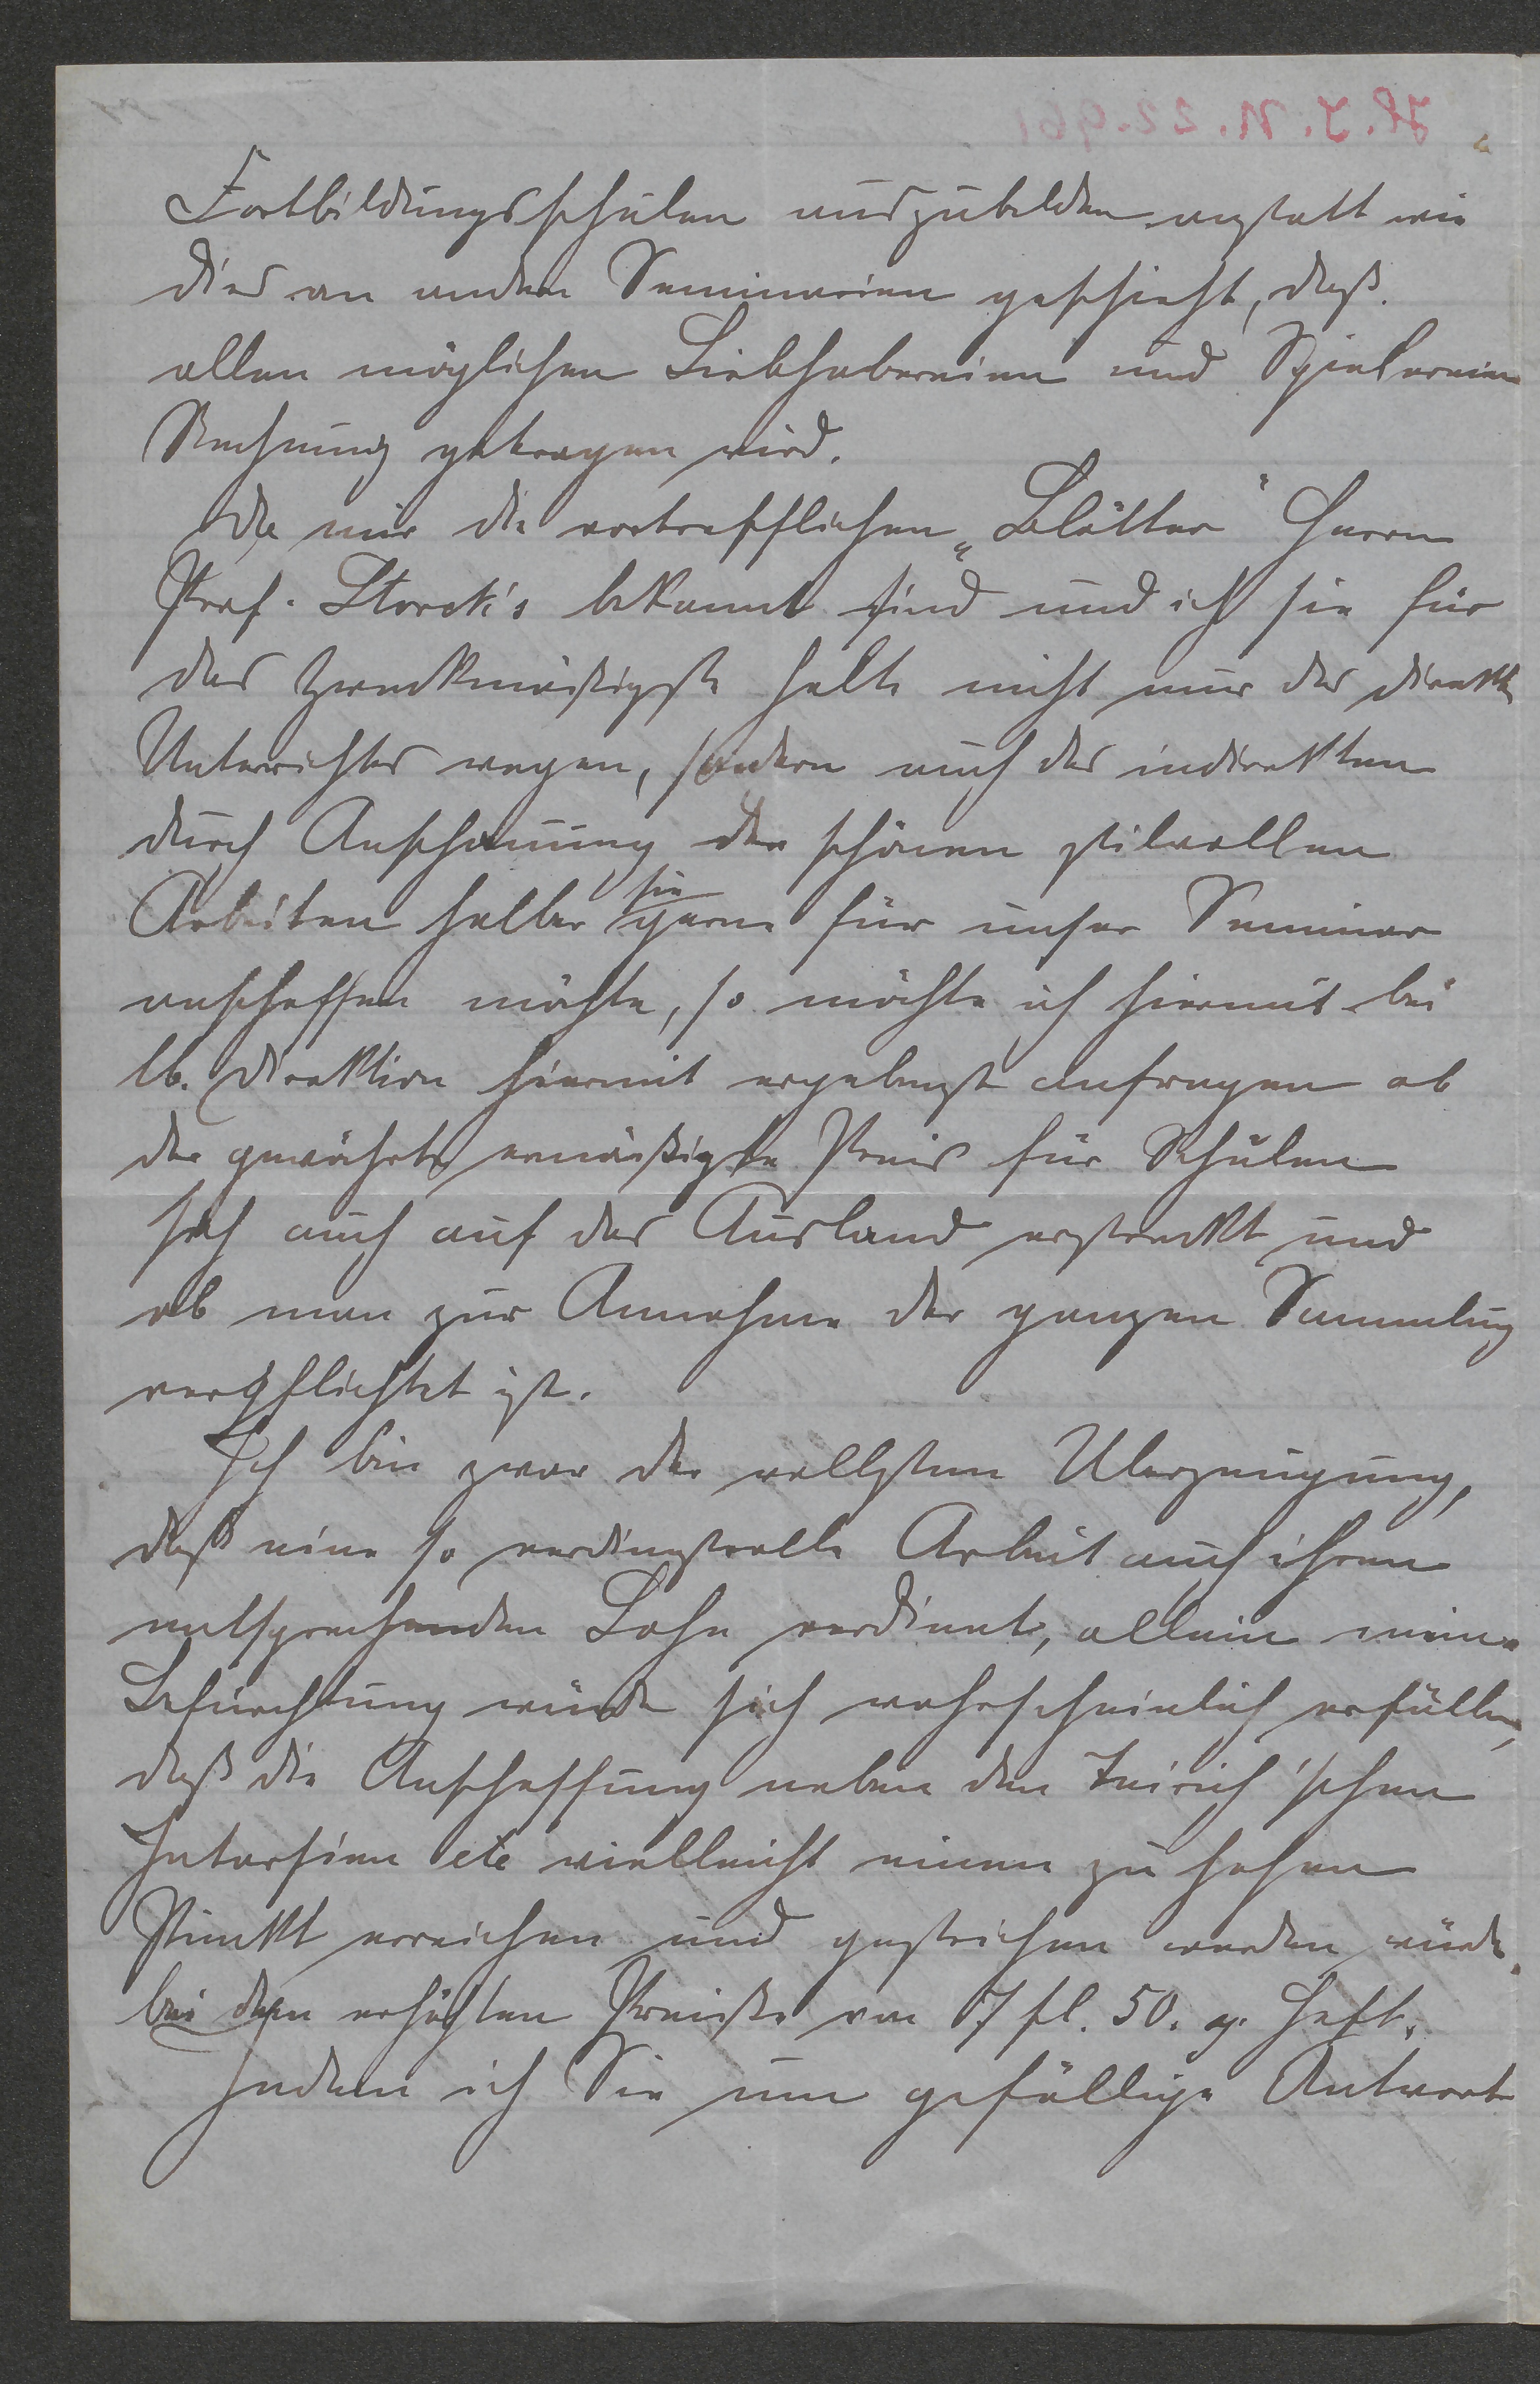 Fortbildungsschulen auszubilden anstatt wie
dies an andern Seminarien geschieht, daß
allen möglichen Liebhabereien und Spielereien
Rechnung getragen wird.
Da mir die vortrefflichen „Blätter" Herrn
Prof. Storck's bekannt sind und ich sie für
das Zweckmäßigste halte nicht nur des direkten
Unterrichtes wegen, sondern auch des indirekten
durch Anschauung der schönen stilvollen
Arbeiten halber sie gerne für unser Seminar
anschaffen möchte, so möchte ich hiermit bei
lb. Direktion hiermit ergebenst anfragen ob
der gewährte ermäßigte Preis für Schulen
sich auch auf das Ausland erstreckt und
ob man zur Annahme der ganzen Sammlung
verpflichtet ist.
Ich bin zwar der vollsten Uberzeugung,
daß eine so verdienstvolle Arbeit auch ihren
entsprechenden Lohn verdient, allein meine
Befürchtung würde sich wahrscheinlich erfüllen,
daß die Anschaffung neben den Teirich'schen
Intarsien etc vielleicht einen zu hohen
Punkt erreichen und gestrichen werden würde.
bei dem erhöhten Preiße von 7 fl. 50. p. Heft.
Indem ich Sie um gefällige Antwort